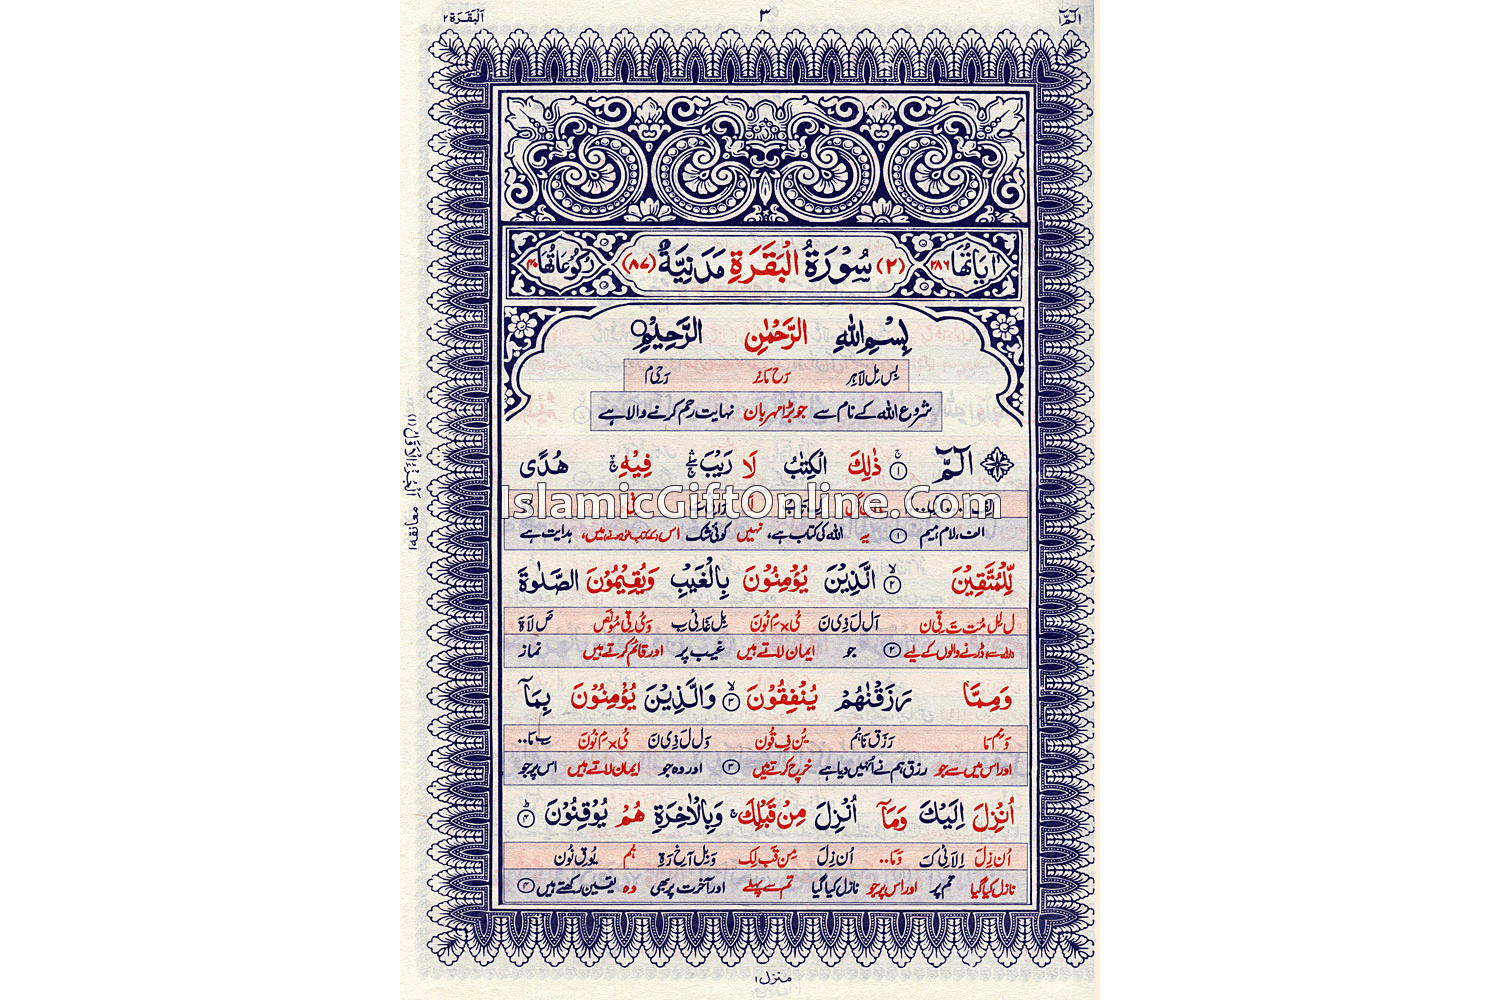 الٓمّٓ ١
٣
اَلْبَقَرَة ٢
اٰیَاتُهَا ٢٨٦
(٢) سُوْرَةُ الْبَقَرَةِ مَدَنِيَّةٌ (٨٧)
رُكُوْعَاتُهَا ٤٠
بِسْمِ اللّٰهِ الرَّحْمٰنِ الرَّحِيْمِ
بِس مِل لَاهِر رَح مَانِر رَحِی م
شروع اللہ کے نام سے جو بڑا مہربان نہایت رحم کرنے والا ہے
الٓمّٓ ۚ ١ ذٰلِكَ الْكِتٰبُ لَا رَيْبَ ۛ فِيْهِ ۛ هُدًى
IslamicGiftOnline.Com
الف، لام، میم ١ یہ اللہ کی کتاب ہے، نہیں کوئی شک اس میں، ہدایت ہے
لِّلْمُتَّقِيْنَ ۙ ٢ الَّذِيْنَ يُؤْمِنُوْنَ بِالْغَيْبِ وَيُقِيْمُوْنَ الصَّلٰوةَ
ل لِل مُت تَ قِی ن اَل لَ ذِی نَ یُ× مِ نُونَ بِل غَائِ بِ وَیُ قِی مُونَص صَ لَاةَ
ڈرنے والوں کے لیے ٢ جو ایمان لاتے ہیں غیب پر اور قائم کرتے ہیں نماز
وَمِمَّا رَزَقْنٰهُمْ يُنْفِقُوْنَ ۙ ٣ وَالَّذِيْنَ يُؤْمِنُوْنَ بِمَآ
وَمِم مَا رَزَق نَاہُم یُن فِ قُون وَل لَ ذِی نَ یُ× مِ نُونَ بِ مَا..
اور اس میں سے جو رزق ہم نے انہیں دیا ہے خرچ کرتے ہیں ٣ اور وہ جو ایمان لاتے ہیں اس پر جو
اُنْزِلَ اِلَيْكَ وَمَآ اُنْزِلَ مِنْ قَبْلِكَ ۚ وَبِالْاٰخِرَةِ هُمْ يُوْقِنُوْنَ ٤
اُن زِلَ اِلَائِ کَ وَمَا.. اُن زِلَ مِن قَب لِک وَبِل آخِ رَةِ ہُم یُوقِ نُون
نازل کیا گیا تم پر اور اس پر جو نازل کیا گیا تم سے پہلے اور آخرت پر بھی وہ یقین رکھتے ہیں ٤
معانقه ١
منزل ١